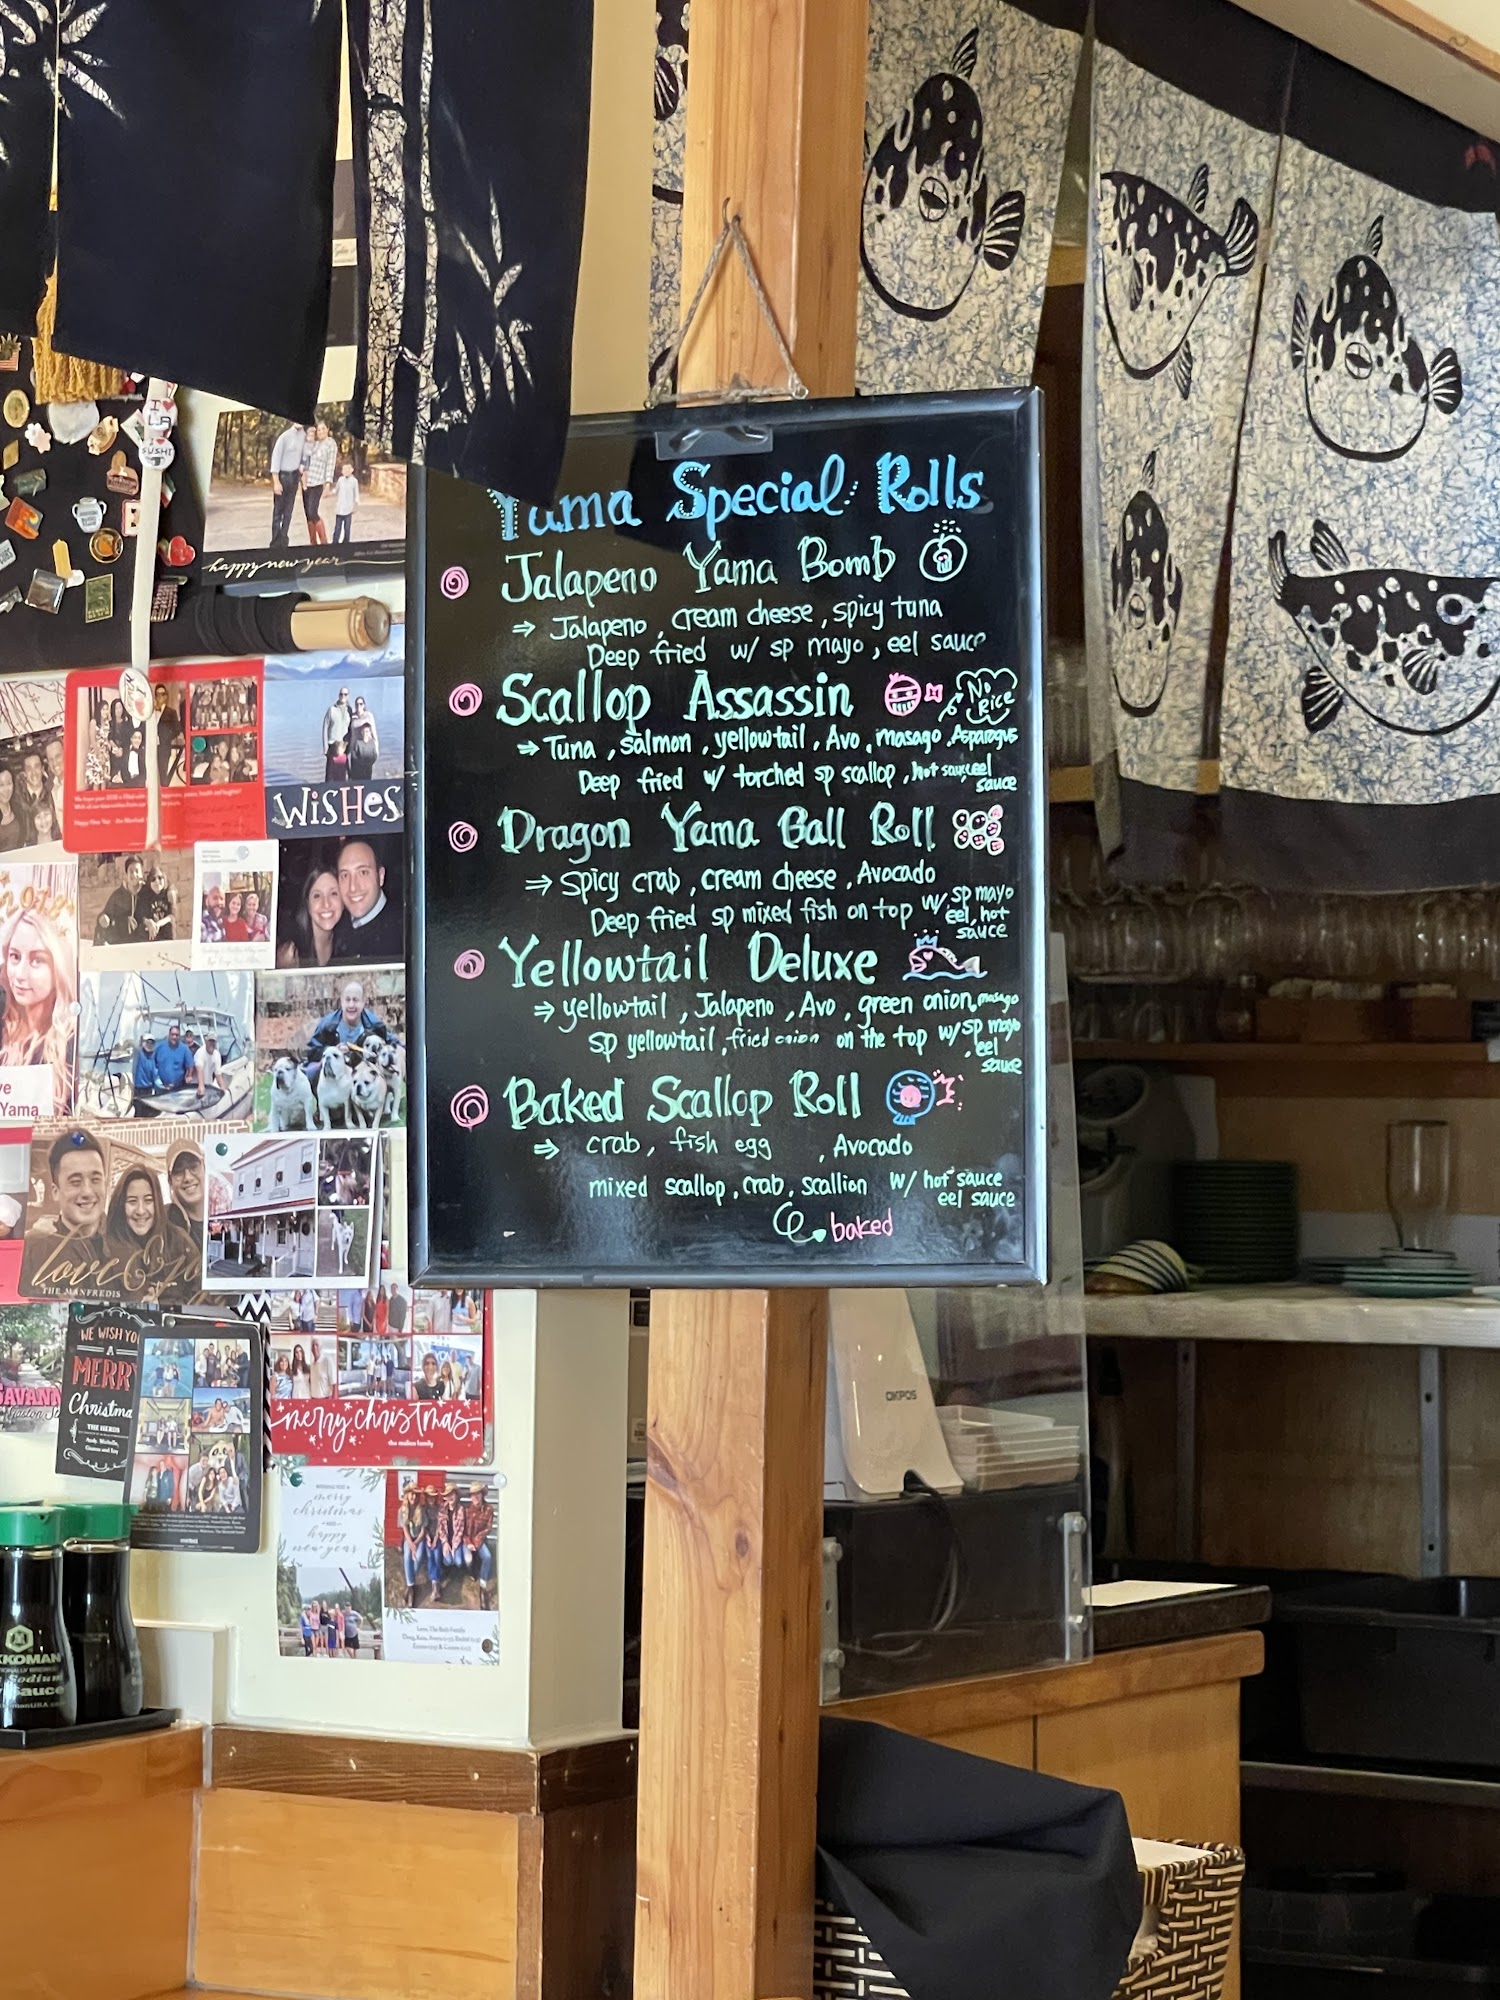 Yama Special Rolls
Jalapeno Yama Bomb
⇒ Jalapeno, cream cheese, spicy tuna
Deep fried w/ sp mayo, eel sauce
Scallop Assassin
No Rice
⇒ Tuna, salmon, yellowtail, Avo, masago, Asparagus
Deep fried w/ torched sp scallop, hot sauce, eel sauce
Dragon Yama Ball Roll
⇒ spicy crab, cream cheese, Avocado
Deep fried sp mixed fish on top w/ sp mayo eel, hot sauce
Yellowtail Deluxe
⇒ yellowtail, Jalapeno, Avo, green onion, masago
sp yellowtail, fried onion on the top w/ sp mayo, eel sauce
Baked Scallop Roll
⇒ crab, fish egg , Avocado
mixed scallop, crab, scallion w/ hot sauce eel sauce
baked
I ♥ LA
SUSHI
happy new year
WiSHes
Yama
love &
THE MANFREDIS
WE WISH YOU
A
MERRY
Christma
THE HERDS
SAVANN
merry christmas
merry
christmas
happy
new year
OKPOS
KKOMAN
Sodium
Sauce